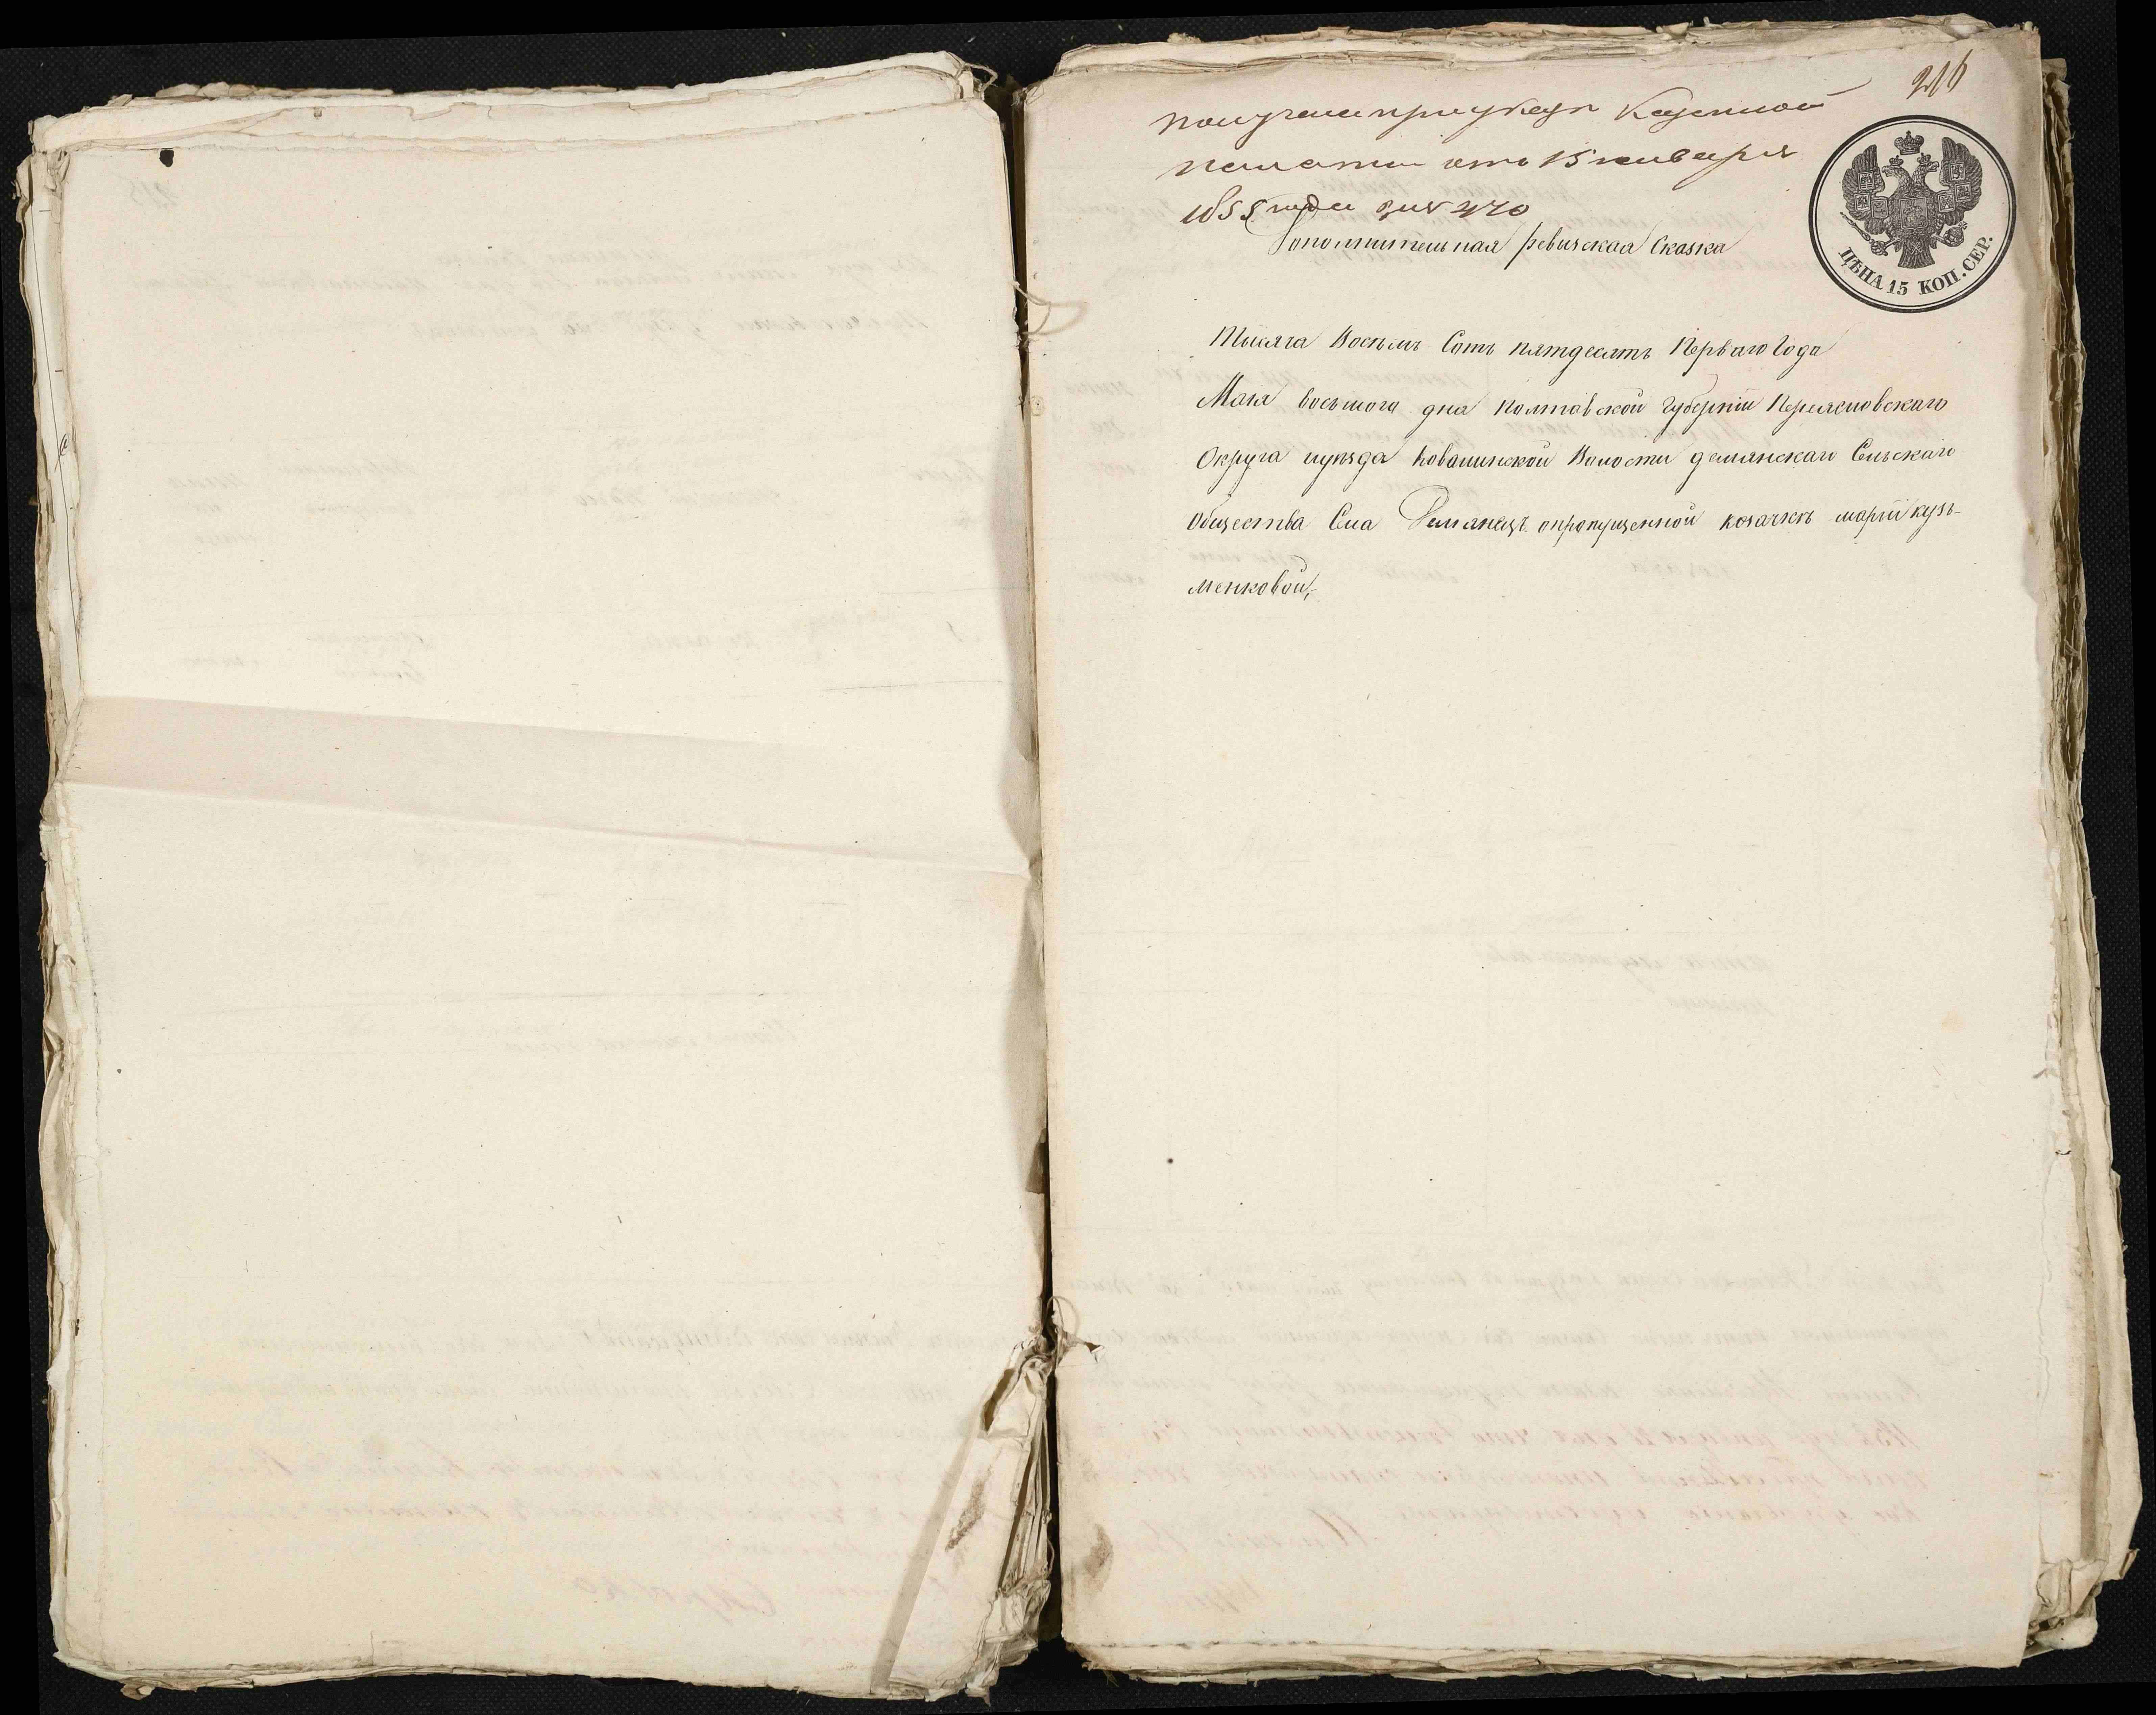 216
получена при указе Казенной
палаты отъ 15 января
1855 года за № 470
Дополнительная ревизская Сказка
ЦѢНА 15 КОП. СЕР.
Тысяча Восемь Сотъ пятдесятъ Перваго Года
Маія восьмого дня Полтавской Губерніи Переяславскаго
Округа иуѣзда Ковалинской Волости демянскаго Сельскаго
Общества Села Демянецъ опропущенной козачкѣ маріи кузь-
менковой,